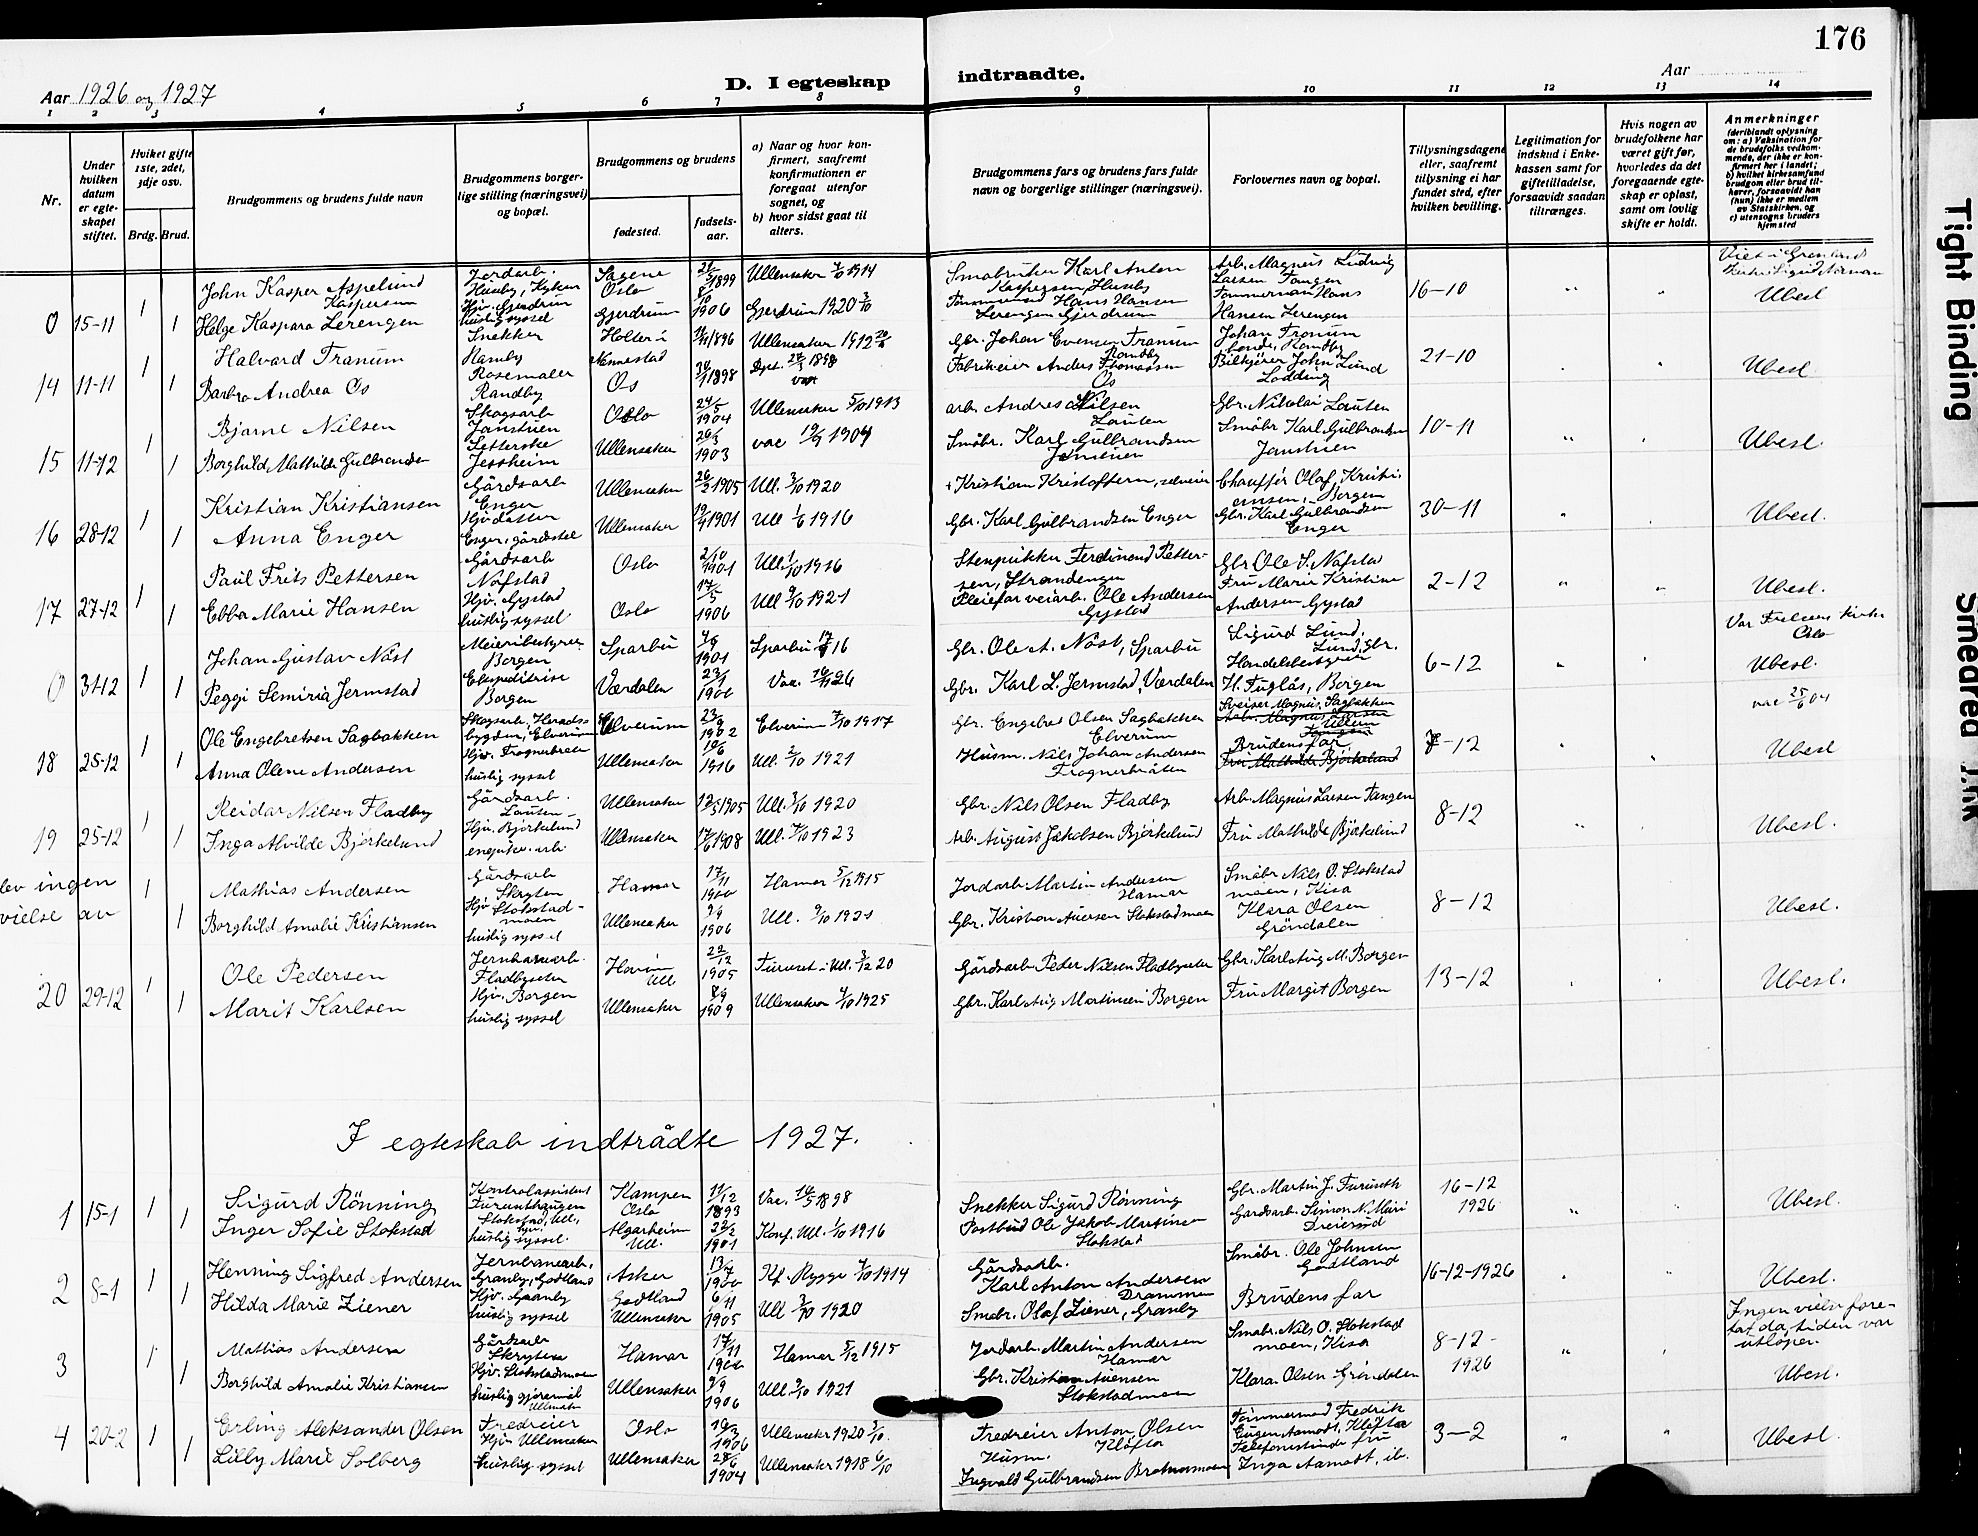 176
Aar 1926 og 1927
D. I egteskap indtraadte.
Aar
1 2 3 4 5 6 7 8 9 10 11 12 13 14
Nr.
Under hvilken datum er egteskapet stiftet.
Hviket gifte 1ste, 2det, 3dje osv.
Brdg. Brud.
Brudgommens og brudens fulde navn
Brudgommens borgerlige stilling (næringsvei) og bopæl.
Brudgommens og brudens
fødested.
fødselsaar.
a) Naar og hvor konfirmert, saafremt konfirmationen er foregaat utenfor sognet, og
b) hvor sidst gaat til alters.
Brudgommens fars og brudens fars fulde navn og borgerlige stillinger (næringsvei).
Forlovernes navn og bopæl.
Tillysningsdagene eller, saafremt tillysning ei har fundet sted, efter hvilken bevilling.
Legitimation for indskud i Enkekassen samt for giftetilladelse, forsaavidt saadan tiltrænges.
Hvis nogen av brudefolkene har været gift før, hvorledes da det foregaaende egteskap er opløst, samt om lovlig skifte er holdt.
Anmerkninger
(deriblandt oplysning om: a) Vaksination for de brudefolks vedkommende, der ikke er konfirmert her i landet; b) hvilket kirkesamfund brudgom eller brud tilhører, forsaavidt han (hun) ikke er medlem av Statskirken, og c) utensogns bruders hjemsted
0 15-11 1 1
John Kasper Aspelund Kaspersen
Helge Kaspara Lerengen
Jordarb. Husby, Kyken
Hjv. Gjerdrum huslig syssel
Oslo
Gjerdrum
1899
1906
Ullensaker 1914
Gjerdrum 1920
Småbruker Karl Anton Kaspersen, Husby
Tømmermand Hans Hansen Lerengen Gjerdrum
Arb. Magnus Ludvig Larsen Tangen
Tømmerman Hans Hansen Lerengen
16-10
Ubesl
14 11-11 1 1
Halvard Tranum
Barbro Andrea Os
Snekker
Rosemaler Randby
Holter i Nannestad
Os
1896
1898
Ullensaker 1912
Gbr. Johan Evensen Tranum Randby
Fabrikeier Anders Thomassen Os
Johan Tranum
Bilkjører John Lund Lødding
21-10
Ubesl
15 11-12 1 1
Bjarne Nilsen
Borghild Mathilde Gulbrandsen
Skogsarb Janstuen
Jessheim
Oslo
Ullensaker
24/5 1904
26/3 1903
Ullensaker 5/10 1913
vac 19/9 1904
arb. Andreas Nilsen Lauten
Småbr. Karl Gulbrandsen
Gbr. Nikolai Lauten
Småbr Karl Gulbrandsen Janstuen
10-11
Ubesl.
16 28-12 1 1
Kristian Kristiansen
Anna Enger
Gårdsarb Enger
Enger, gårdstel
Ullensaker
Ullensaker
26/2 1905
19/4 1901
Ull. 3/10 1920
Ull 1/6 1916
+ Kristian Kristoffersen, selveier
Gbr. Karl Gulbrandsen Enger
Chauffør Olaf Kristiansen, Borgen
Gbr. Karl Gulbrandsen Enger
30-11
Ubesl.
17 27-12 1 1
Paul Frits Pettersen
Ebba Marie Hansen
Gårdsarb Nafstad
Hjv. Gystad huslig syssel
Oslo
Oslo
2/10 1901
17/5 1906
Ull. 1/10 1916
Ull 9/10 1921
Stenpukker Ferdinand Pettersen, Strandengen
Pleiefar veiarb. Ole Andersen Gystad
Gbr Ole S. Nafstad
Fru Marie Kristine Andersen Gystad
2-12
Ubesl.
0 31-12 1 1
Johan Gustav Nøst
Peggi Semiria Jermstad
Meieribestyrer Borgen
Ekspeditrise Borgen
Sparbu
Værdalen
1901
1906
Sparbu 16
Vac. 26
Gbr. Ole A. Nøst, Sparbu
Gbr. Karl L. Jermstad, Værdalen
Sigurd Lund, Lund, gbr.
Handelsbestyrer H. Fuglås, Borgen
6-12
Vor Frelsers kirke Oslo
Ubesl.
18 25-12 1 1
Ole Engebretsen Sagbakken
Anna Olene Andersen
Skogsarb, Heradsbygden, Elverum
huslig syssel
Elverum
Ullensaker
23/9 1902
Elverum 7/10 1917
Ull. 2/10 1921
Gbr. Engebret Olsen Sagbakken Elverum
Husm. Nils Johan Andersen Frognerbråten
Sveiser Magnus Sagbakken
Brudens far
Fru Mathilde Bjørkelund
7-12
vac 25/6 04
Ubesl
19 25-12 1 1
Reidar Nilsen Fladby
Inga Alvilde Bjørkelund
Gårdsarb. Lauten
Hjv. Bjørkelund
Ullensaker
Ullensaker
1905
1908
Ull. 3/10 1920
Ull. 7/10 1923
Gbr. Nils Olsen Fladby
Arb. August Jakobsen Bjørkelund
Arb. Magnus Larsen Tangen
Fru Mathilde Bjørkelund
8-12
Ubesl.
lev ingen vielse av
1 1
Mathias Andersen
Borghild Amalie Kristiansen
Gårdsarb Skryten
Hjv Stokstadmoen huslig syssel
Hamar
Ullensaker
17/11 1900
9/9 1906
Hamar 5/12 1915
Ull. 9/10 1921
Jordarb. Martin Andersen Hamar
Gbr. Kristian Auensen Stokstadmoen
Småbr Nils O. Stokstadmoen, Kisa
Klara Olsen Gröndalen
8-12
Ubesl.
20 29-12 1 1
Ole Pedersen
Marit Karlsen
Jernbanearb. Fladbyseter
Hjv. Borgen huslig syssel
Hovin Ull
Ullensaker
22/12 1905
8/9 1909
Furuset i Ull. 3/12 20
Ullensaker 4/10 1925
Gårdsarb Peder Nilsen Fladbyseter
Gbr. Karl Aug Martinsen Borgen
Gbr. Karl Aug M. Borgen
Fru Margit Borgen
13-12
Ubesl.
I egteskab indtrådte 1927.
1 15-1 1 1
Sigurd Rönning
Inger Sofie Stokstad
Kontrolassistent Furuuthaugen
Stokstad, Ull, hjv. huslig syssel.
Kampen Oslo
Algarheim Ull.
11/12 1893
22/2 1901
Vac. 1898
Konf. Ull. 1/10 1916
Snekker Sigurd Rönning
Postbud Ole Jakob Martinsen Stokstad
Gbr. Martin J. Furuseth
Gårdsarb. Simon N. Mari Dreiersud
16-12 1926
Ubesl.
2 8-1 1 1
Henning Sigfred Andersen
Hilda Marie Ziener
Jernbanearb. Granby, Godtland
Hjv. Granby huslig syssel
Asker
Godtland Ullensaker
13/7 1900
6/11 1905
Kf. Rygge 1914
Ull 3/10 1920
Gårdsarb. Karl Anton Andersen Drammen
Småbr. Olaf Ziener, Granby
Småbr. Ole Johnsen Godtland
Brudens far
16-12-1926
Ubesl.
3 1 1
Mathias Andersen
Borghild Amalie Kristiansen
Gårdsarb Skryten
Hjv. Stokstadmoen huslig gjøremål Ullensaker
Hamar
Ullensaker
17/11 1900
9/9 1906
Hamar 5/12 1915
Ull. 9/10 1921
Jordarb. Martin Andersen Hamar
Gbr. Kristian Auensen Stokstadmoen
Småbr. Nils O. Stokstadmoen, Kisa
Klara Olsen Gröndalen
8-12-1926
Ingen vielse foretat da tiden var utløpen
Ubesl.
4 20-2 1 1
Erling Aleksander Olsen
Lilly Marie Solberg
Fredreier
Hjv Ullensaker huslig syssel
Oslo
Ullensaker
1906
1904
Ullensaker 1920
Ullensaker 1918 6/10
Fredreier Anton Olsen Kløfta
Husm. Ingvald Gulbrandsen
Tømmermand Fredrik Eugen Aamodt, Kløfta
Telefonistinde fru Inga Aamodt, ib.
3-2
Ubesl.
Tight Binding
Smeared Ink